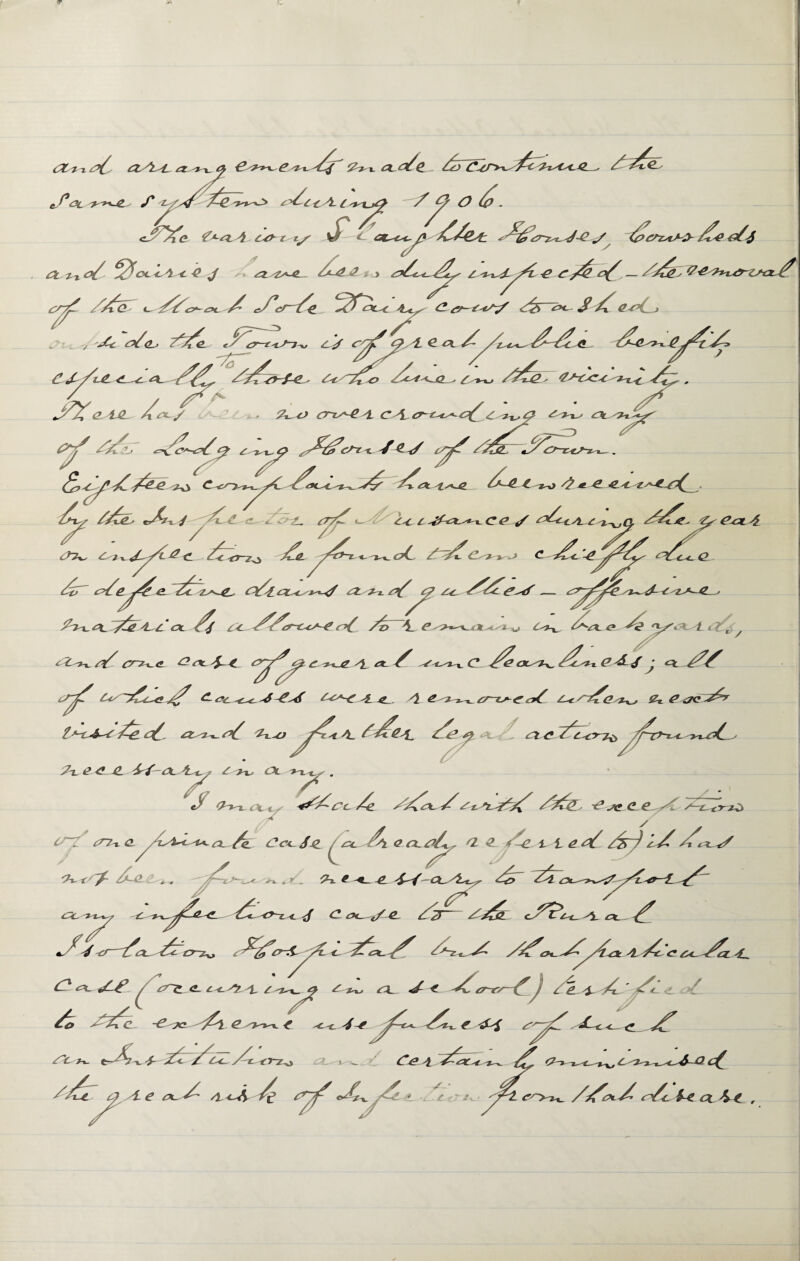 and arrangements made to continue the
same system during 1906.
The various Slaughter Houses, Cowsheds
and Dairies have been duly inspected — the removal
of the Stoat Sole Dairy cows to a Shed
outside the Town is of great public benefit
especially to those who live in the vicinity.
There has no overcrowding in any
of the Lodging Houses of the Town.
Eighteen complaints have been received
by the Inspector of Nuisances during the year
on inspection he found them chiefly due
to defective drains and gullies — offensive
materials allowed to remain in back yards,
and one case of general uncleanliness; all
of which causes were removed when next
visited and no further legal action found
necessary in any.
I may state that with the exception
of one private case (already referred to) it has
not been found necessary to transport
any infectious case to the Rural
Isolation Hospital but that particular
case (occurring in a school) testified
to the extreme usefulness of such
an Institution and certainly minimised
the great risk of Infection from that disease.